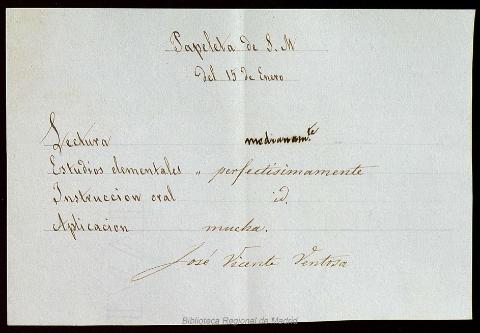 Papeleta de S. M
del 15 de Enero
Lectura medianam.te
Estudios elementales " perfectisimamente
Instruccion oral id.
Aplicacion mucha.
José Vicente Ventosa
Biblioteca Regional de Madrid